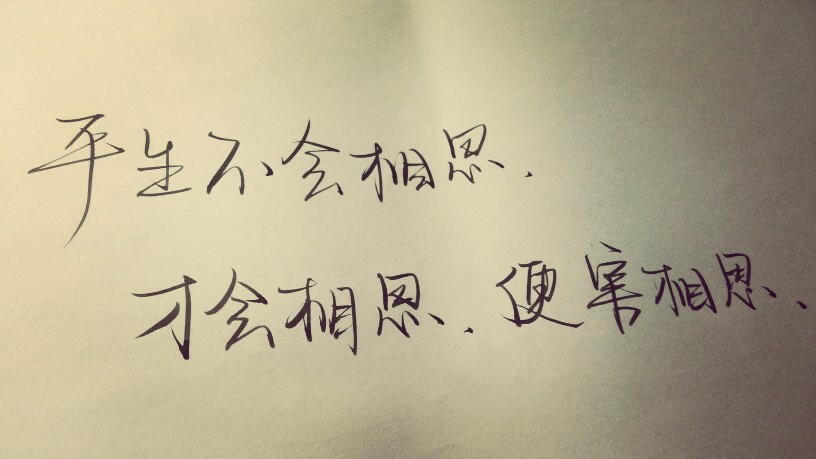 平生不会相思.
才会相思.便害相思.